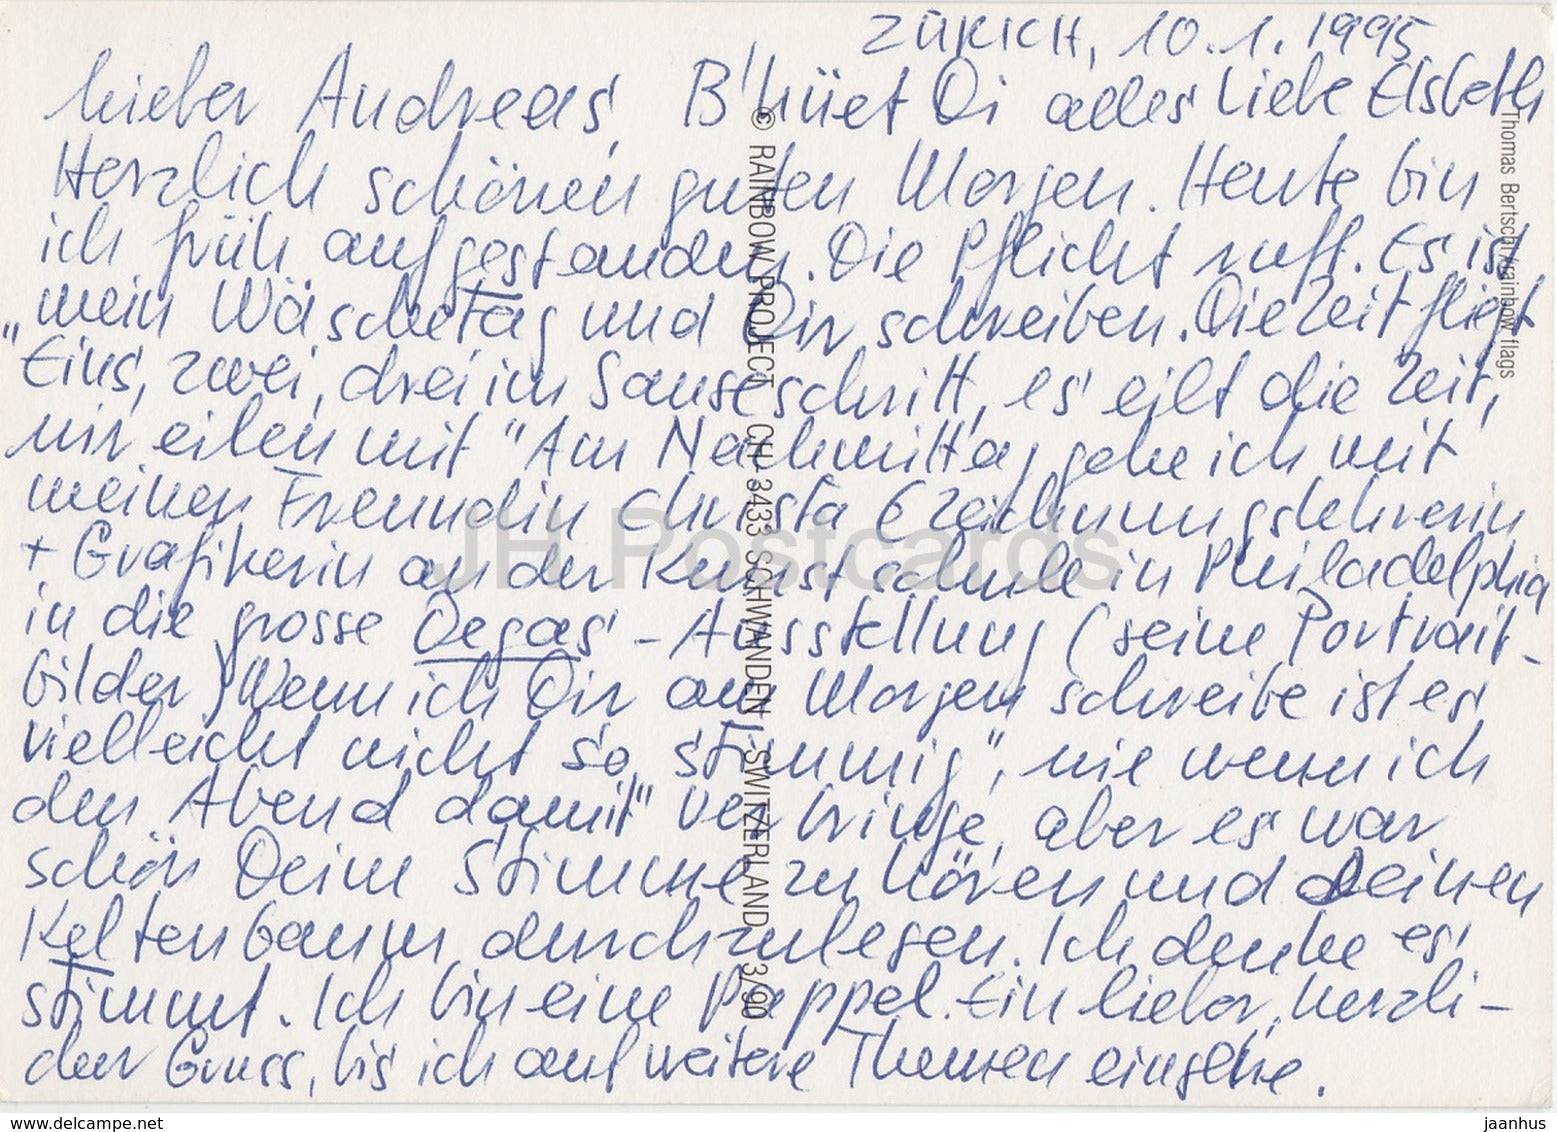 ZÜRICH, 10.1.1995
Lieber Andreas, B'hüet Di alles Liebe Elsbeth
Herzlich schönen guten Morgen. Heute bin
ich früh aufgestanden. Die Pflicht ruft. Es ist
mein Wäschetag und Dir schreiben. Die Zeit fliegt
"Eins, zwei, drei im Sauseschritt, es eilt die Zeit,
wir eilen mit" Am Nachmittag gehe ich mit
meiner Freundin Christa (Zeichnungslehrerin
+ Grafikerin an der Kunstschule in Philadelphia
in die grosse Degas - Ausstellung (seine Portrait-
bilder) Wenn ich Dir am Morgen schreibe ist es
vielleicht nicht so "stimmig", wie wenn ich
den Abend damit verbringe, aber es war
schön Deine Stimme zu hören und Deinen
Keltenbaum durchzulesen. Ich denke es
stimmt. Ich bin eine Pappel. Ein lieber, herzli-
cher Gruss, bis ich auf weitere Themen eingehe.
© RAINBOW PROJECT CH-3433 SCHWANDEN / SWITZERLAND 3/90
Thomas Bertschi / rainbow flags
JH Postcards
www.delcampe.net
jaanhus